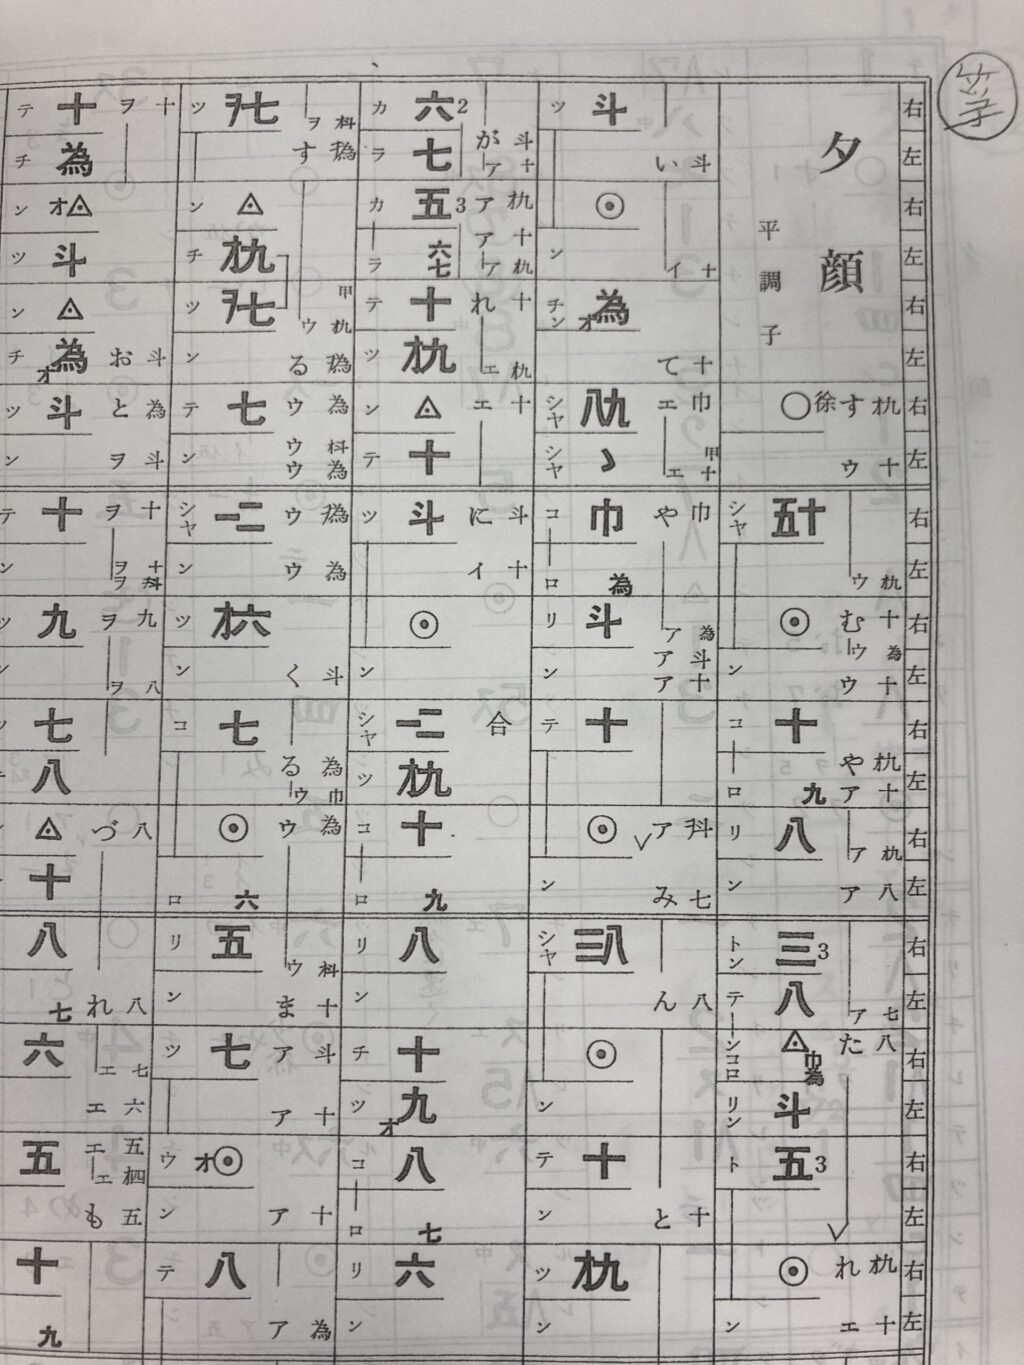 箏
夕顔
平調子
右左右左右左右左右左右左右左右左右左右左右左右左
オ九十オ九十為十オ九十オ九八七八オ九十
徐すウウむウウやアアアアたれエ
〇五十⊙十九八三3八△巾為斗五3⊙
シヤンコーロリントンテーンコロリントン
斗十十巾甲十巾為斗十七八十
いイてエエやアアアアみんと
斗⊙為オ八九ヽ巾為斗十⊙三八⊙十オ九
ツンチンシヤシヤコーロリンテンシヤンテンツン
斗十オ九十オ九十オ九十斗十合
がアアアアれエエにイ
六2七五3六七十オ九△十斗⊙一二オ九十九八十九オ八七六
カラカーラテツンテツンシヤツコーロリンチツコーロリン
ヲすウるウウウウウくるウウウまアアアア
ヲ七△オ九ヲ七七一二オ六七⊙六五七オ⊙八
ツンチツンテンシヤンツンコロリンツウンテン
十斗為斗十十九八八八七六五五
ヲおとヲヲヲヲヲヲづれエエエエも
十為オ△斗△為オ斗十九七八△十八七六五十九
テチンツンチツンテンツン